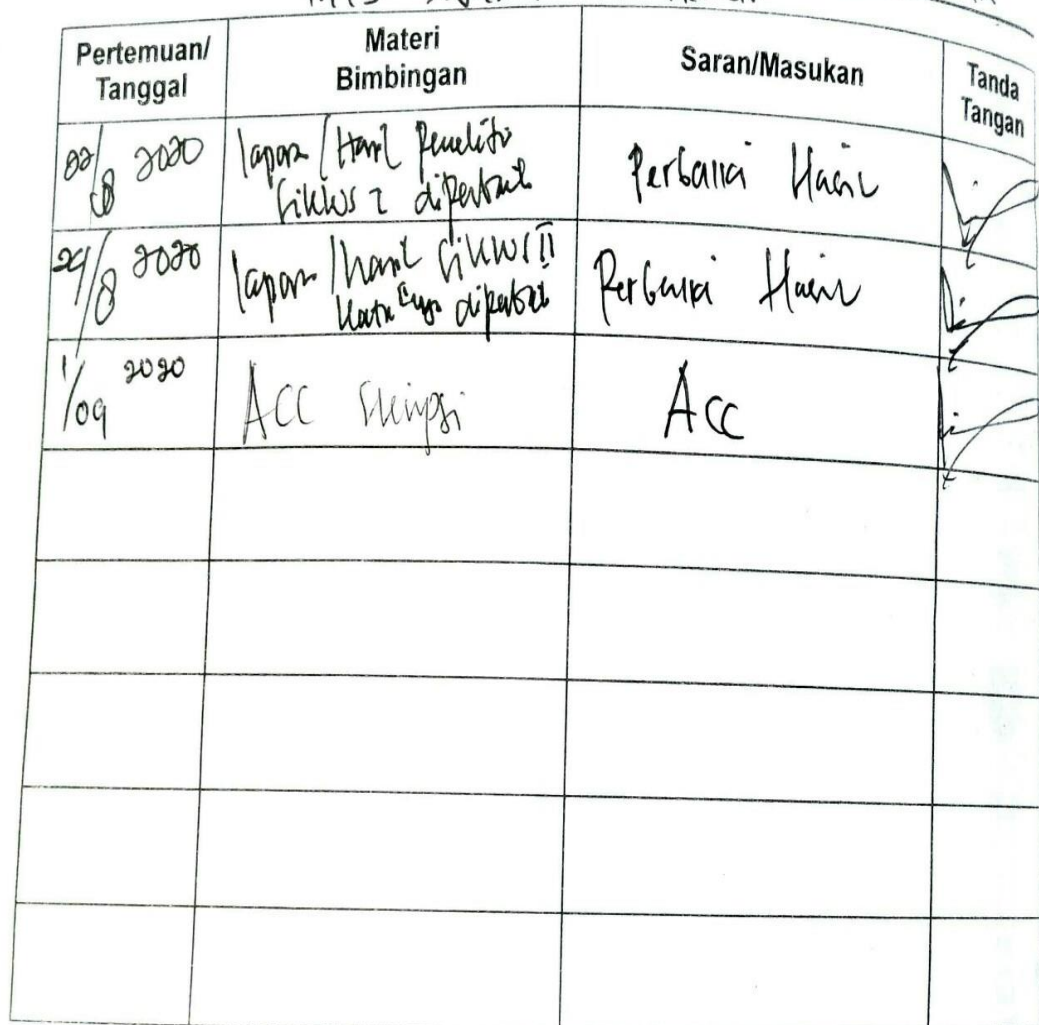 Pertemuan/
Tanggal
Materi
Bimbingan
Saran/Masukan
Tanda
Tangan
22/8 2020
lapor / Hasil Peneliti
Siklus I diperbaiki
Perbaiki Hasil
29/8 2020
lapor / hasil siklus II
diperbaiki
Perbaiki Hasil
1/09 2020
ACC Skripsi
Acc